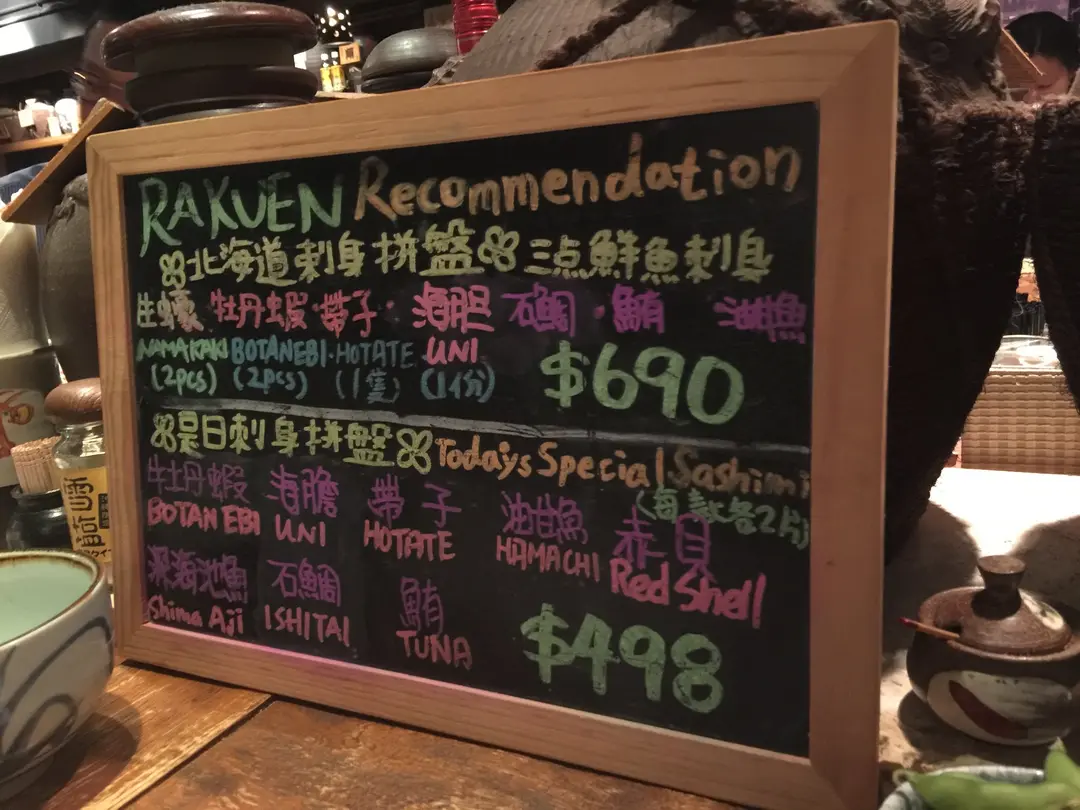 RAKUEN Recommendation
北海道刺身拼盤 三点鮮魚刺身
生蠔 牡丹蝦・帶子・海胆 石鯛・鮪 油甘魚
NAMAKAKI BOTANEBI・HOTATE UNI
(2pcs) (2pcs) (1隻) (1份) $690
是日刺身拼盤 Todays Special Sashimi
(每款各2片)
牡丹蝦 海膽 帶子 油甘魚 赤貝
BOTAN EBI UNI HOTATE HAMACHI Red Shell
深海池魚 石鯛 鮪
Shima Aji ISHITAI TUNA
$498